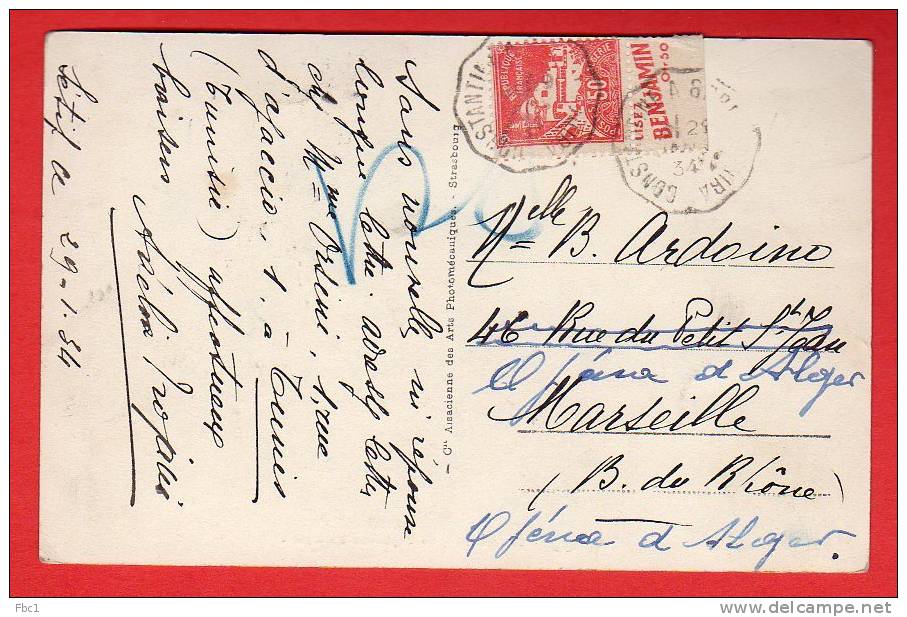 Sans nouvelle, ni réponse
longue lettre. adressez lettre
chez Mme Orsini, 1, rue
d'ajaccio, 1. a Tunis
(Tunisie) affectueux
baisers
Sétif le 29-1-34
- Cie Alsacienne des Arts Photomécaniques. - Strasbourg
REPUBLIQUE FRANCAISE
POSTES
50
LISEZ
BENJAMIN
0f.50
CONSTANTINE
29
34
Melle B. Ardoino
46 Rue du Petit St Jean
d'Alger
Marseille
(B. du Rhône)
d'Alger.
Fbc1
www.delcampe.net